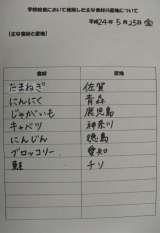 学校給食において使用した主な食材の産地について
平成24年 5月25日 金
【主な食材と産地】
食材 産地
たまねぎ 佐賀
にんにく 青森
じゃがいも 鹿児島
キャベツ 神奈川
にんじん 徳島
ブロッコリー 愛知
鮭 チリ